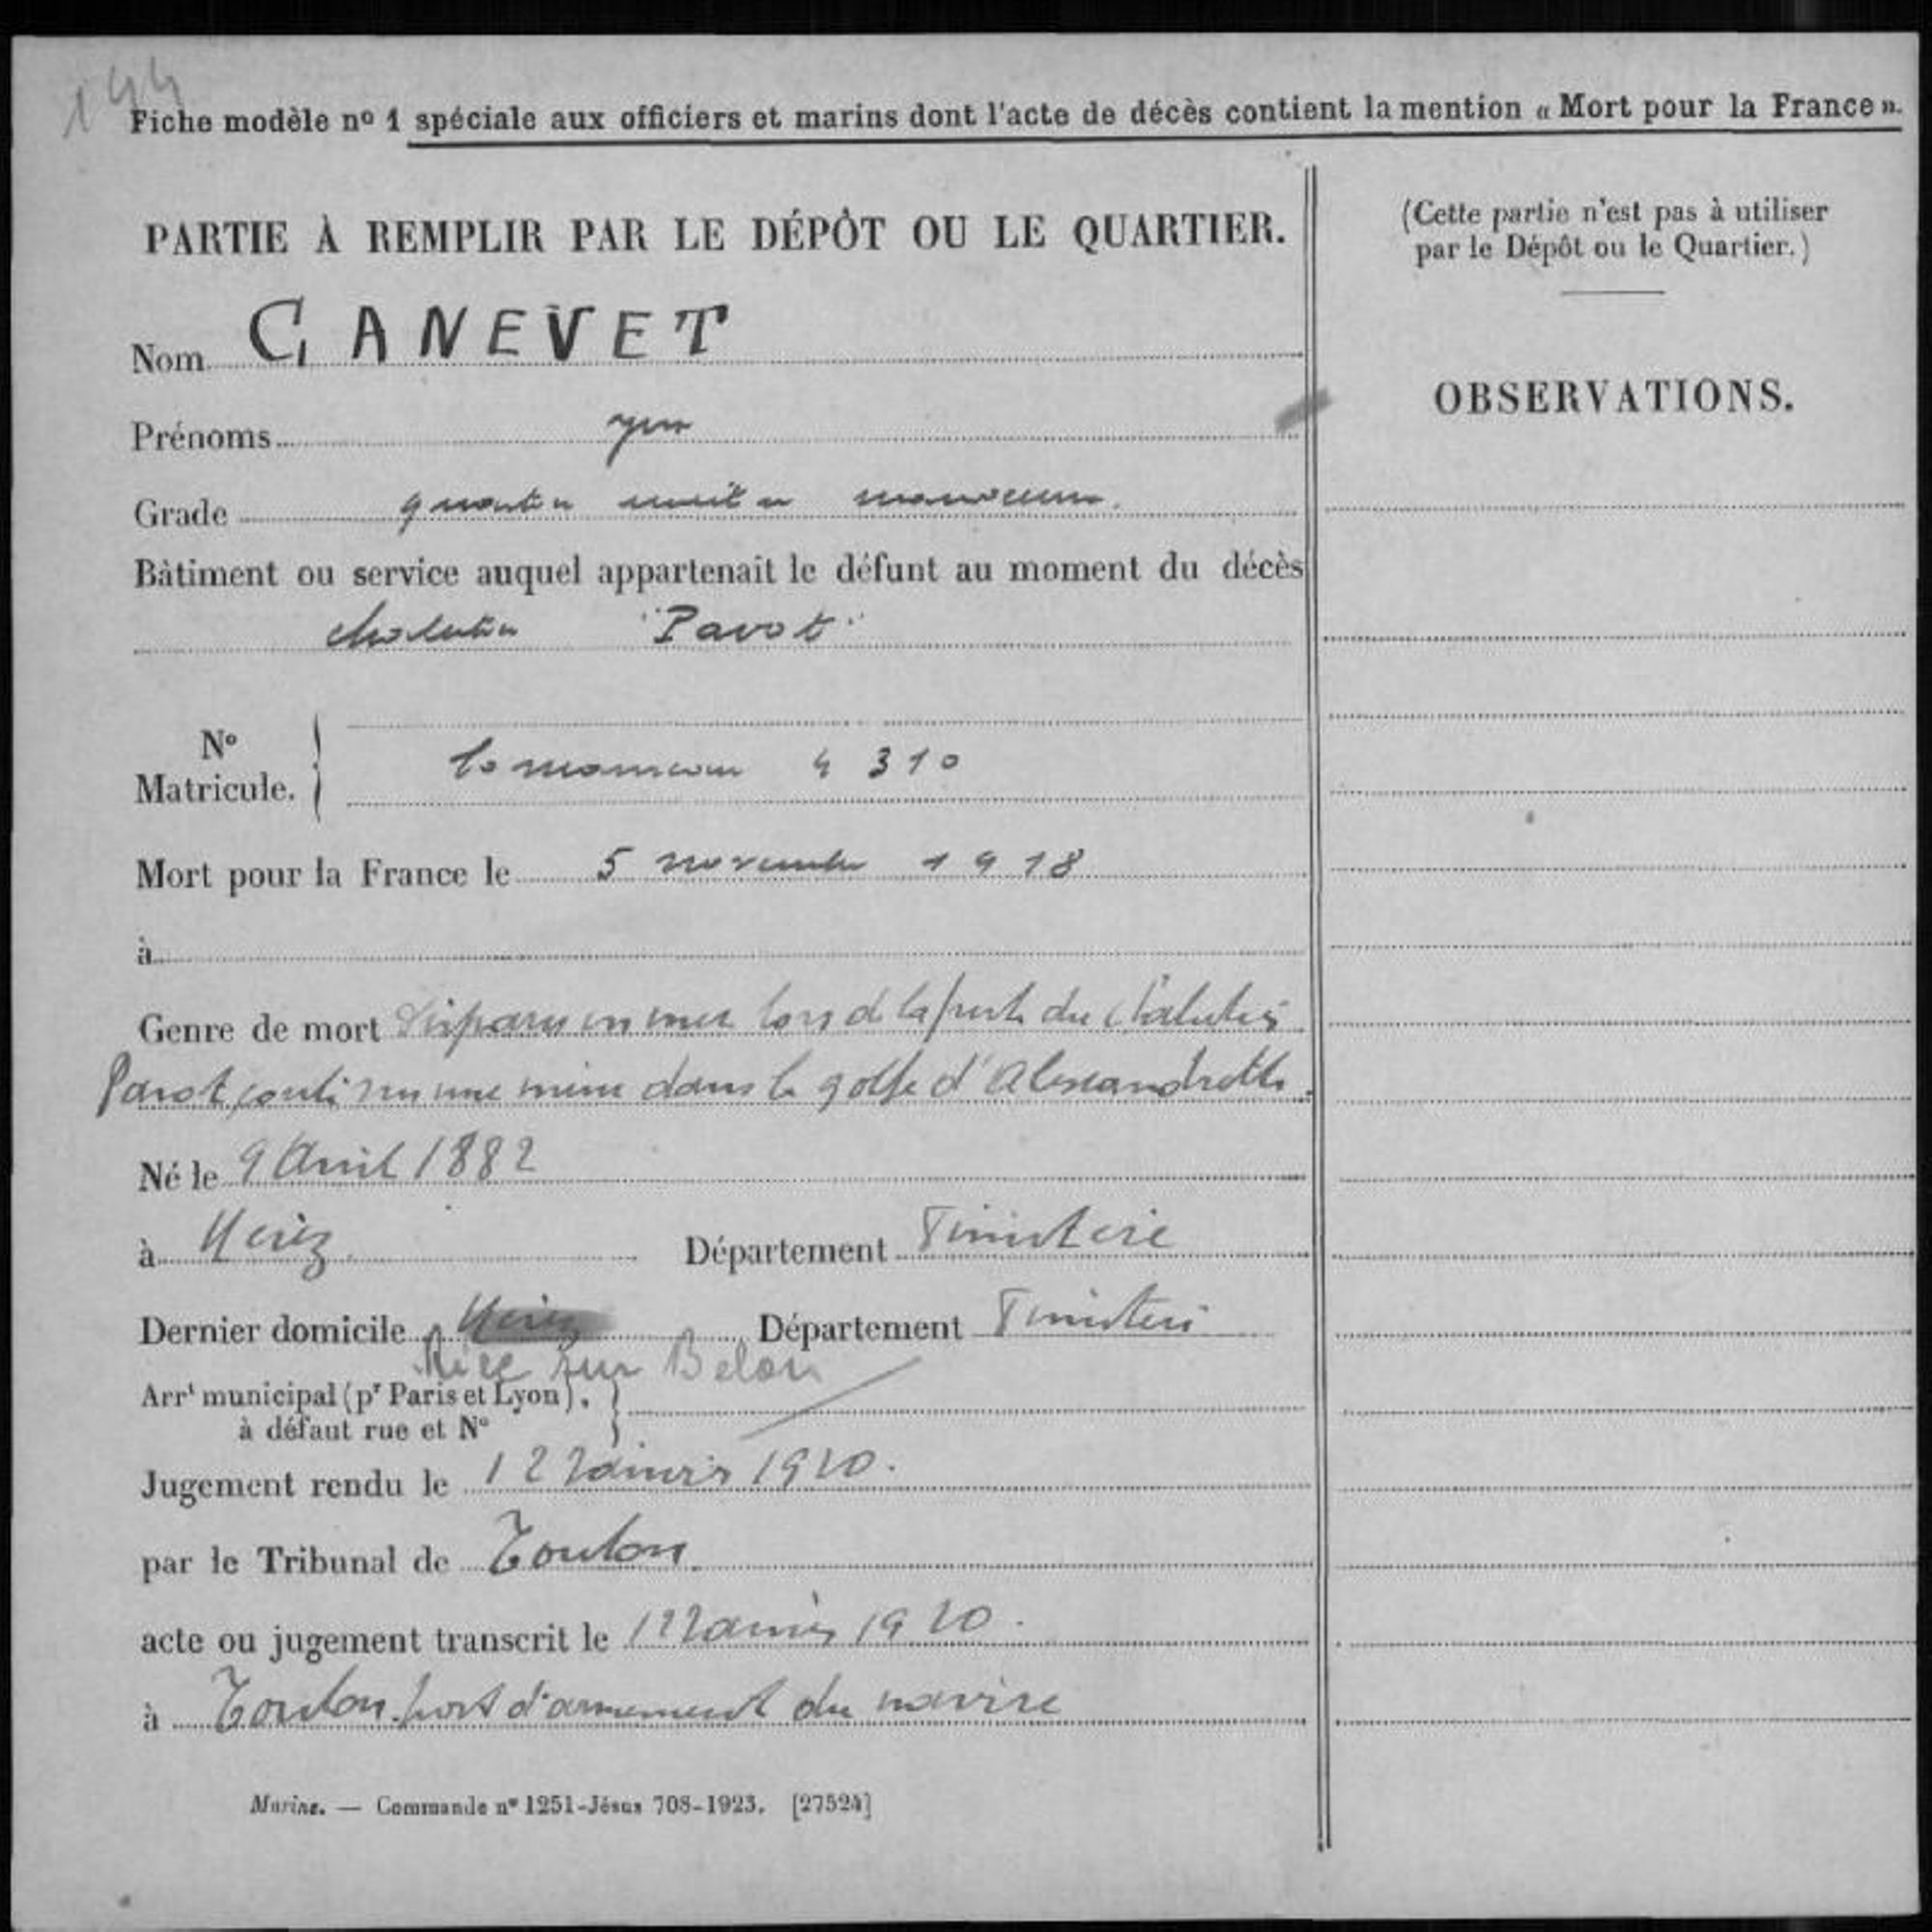 144
Fiche modèle nº 1 spéciale aux officiers et marins dont l'acte de décès contient la mention « Mort pour la France ».
PARTIE À REMPLIR PAR LE DÉPÔT OU LE QUARTIER.
(Cette partie n'est pas à utiliser
par le Dépôt ou le Quartier.)
Nom CANEVET
OBSERVATIONS.
Prénoms
Grade quartier maitre manoeuvre.
Bâtiment ou service auquel appartenait le défunt au moment du décès
chalutier "Pavot"
Nº
Matricule. } Concarneau 4310
Mort pour la France le 5 novembre 1918
à
Genre de mort Disparu en mer lors de la perte du chalutier
Pavot, coulé sur une mine dans le golfe d'Alexandrette.
Né le 9 Avril 1882
à Nevez Département Finistère
Dernier domicile Nevez Département Finistère
Riec sur Belon
Arrt municipal (pr Paris et Lyon), }
à défaut rue et Nº
Jugement rendu le 12 Janvier 1920.
par le Tribunal de Toulon
acte ou jugement transcrit le 12 Janvier 1920.
à Toulon port d'armement du navire
Marine. — Commande nº 1251-Jésus 708-1923. [27524]